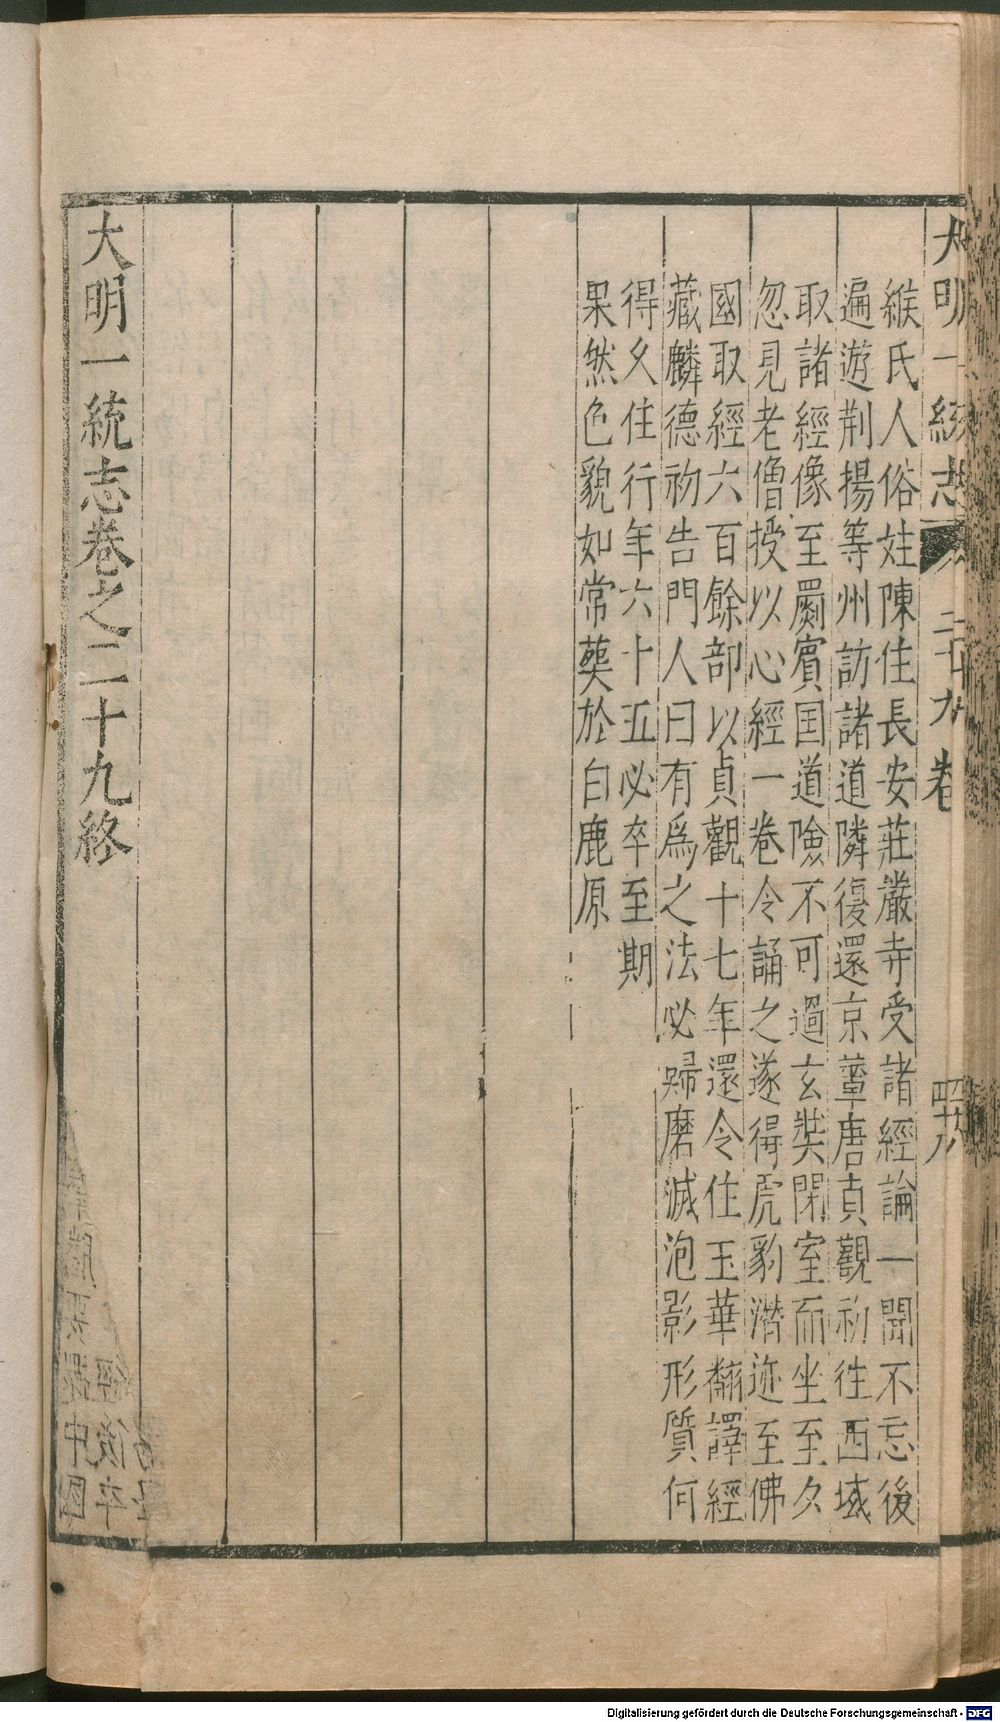 大明一統志 二十九卷 四十八
緱氏人俗姓陳住長安莊嚴寺受諸經論一聞不忘後
遍遊荆揚等州訪諸道隣復還京輦唐貞觀初往西域
取諸經像至罽賓国道險不可過玄奘閉室而坐至夕
忽見老僧授以心經一卷令誦之遂得虎豹潛迹至佛
國取經六百餘部以貞觀十七年還令住玉華翻譯經
藏麟德初告門人曰有爲之法必歸磨滅泡影形質何
得久住行年六十五必卒至期
果然色貌如常葬於白鹿原
大明一統志卷之二十九終
經後卒
中國
Digitalisierung gefördert durch die Deutsche Forschungsgemeinschaft - DFG